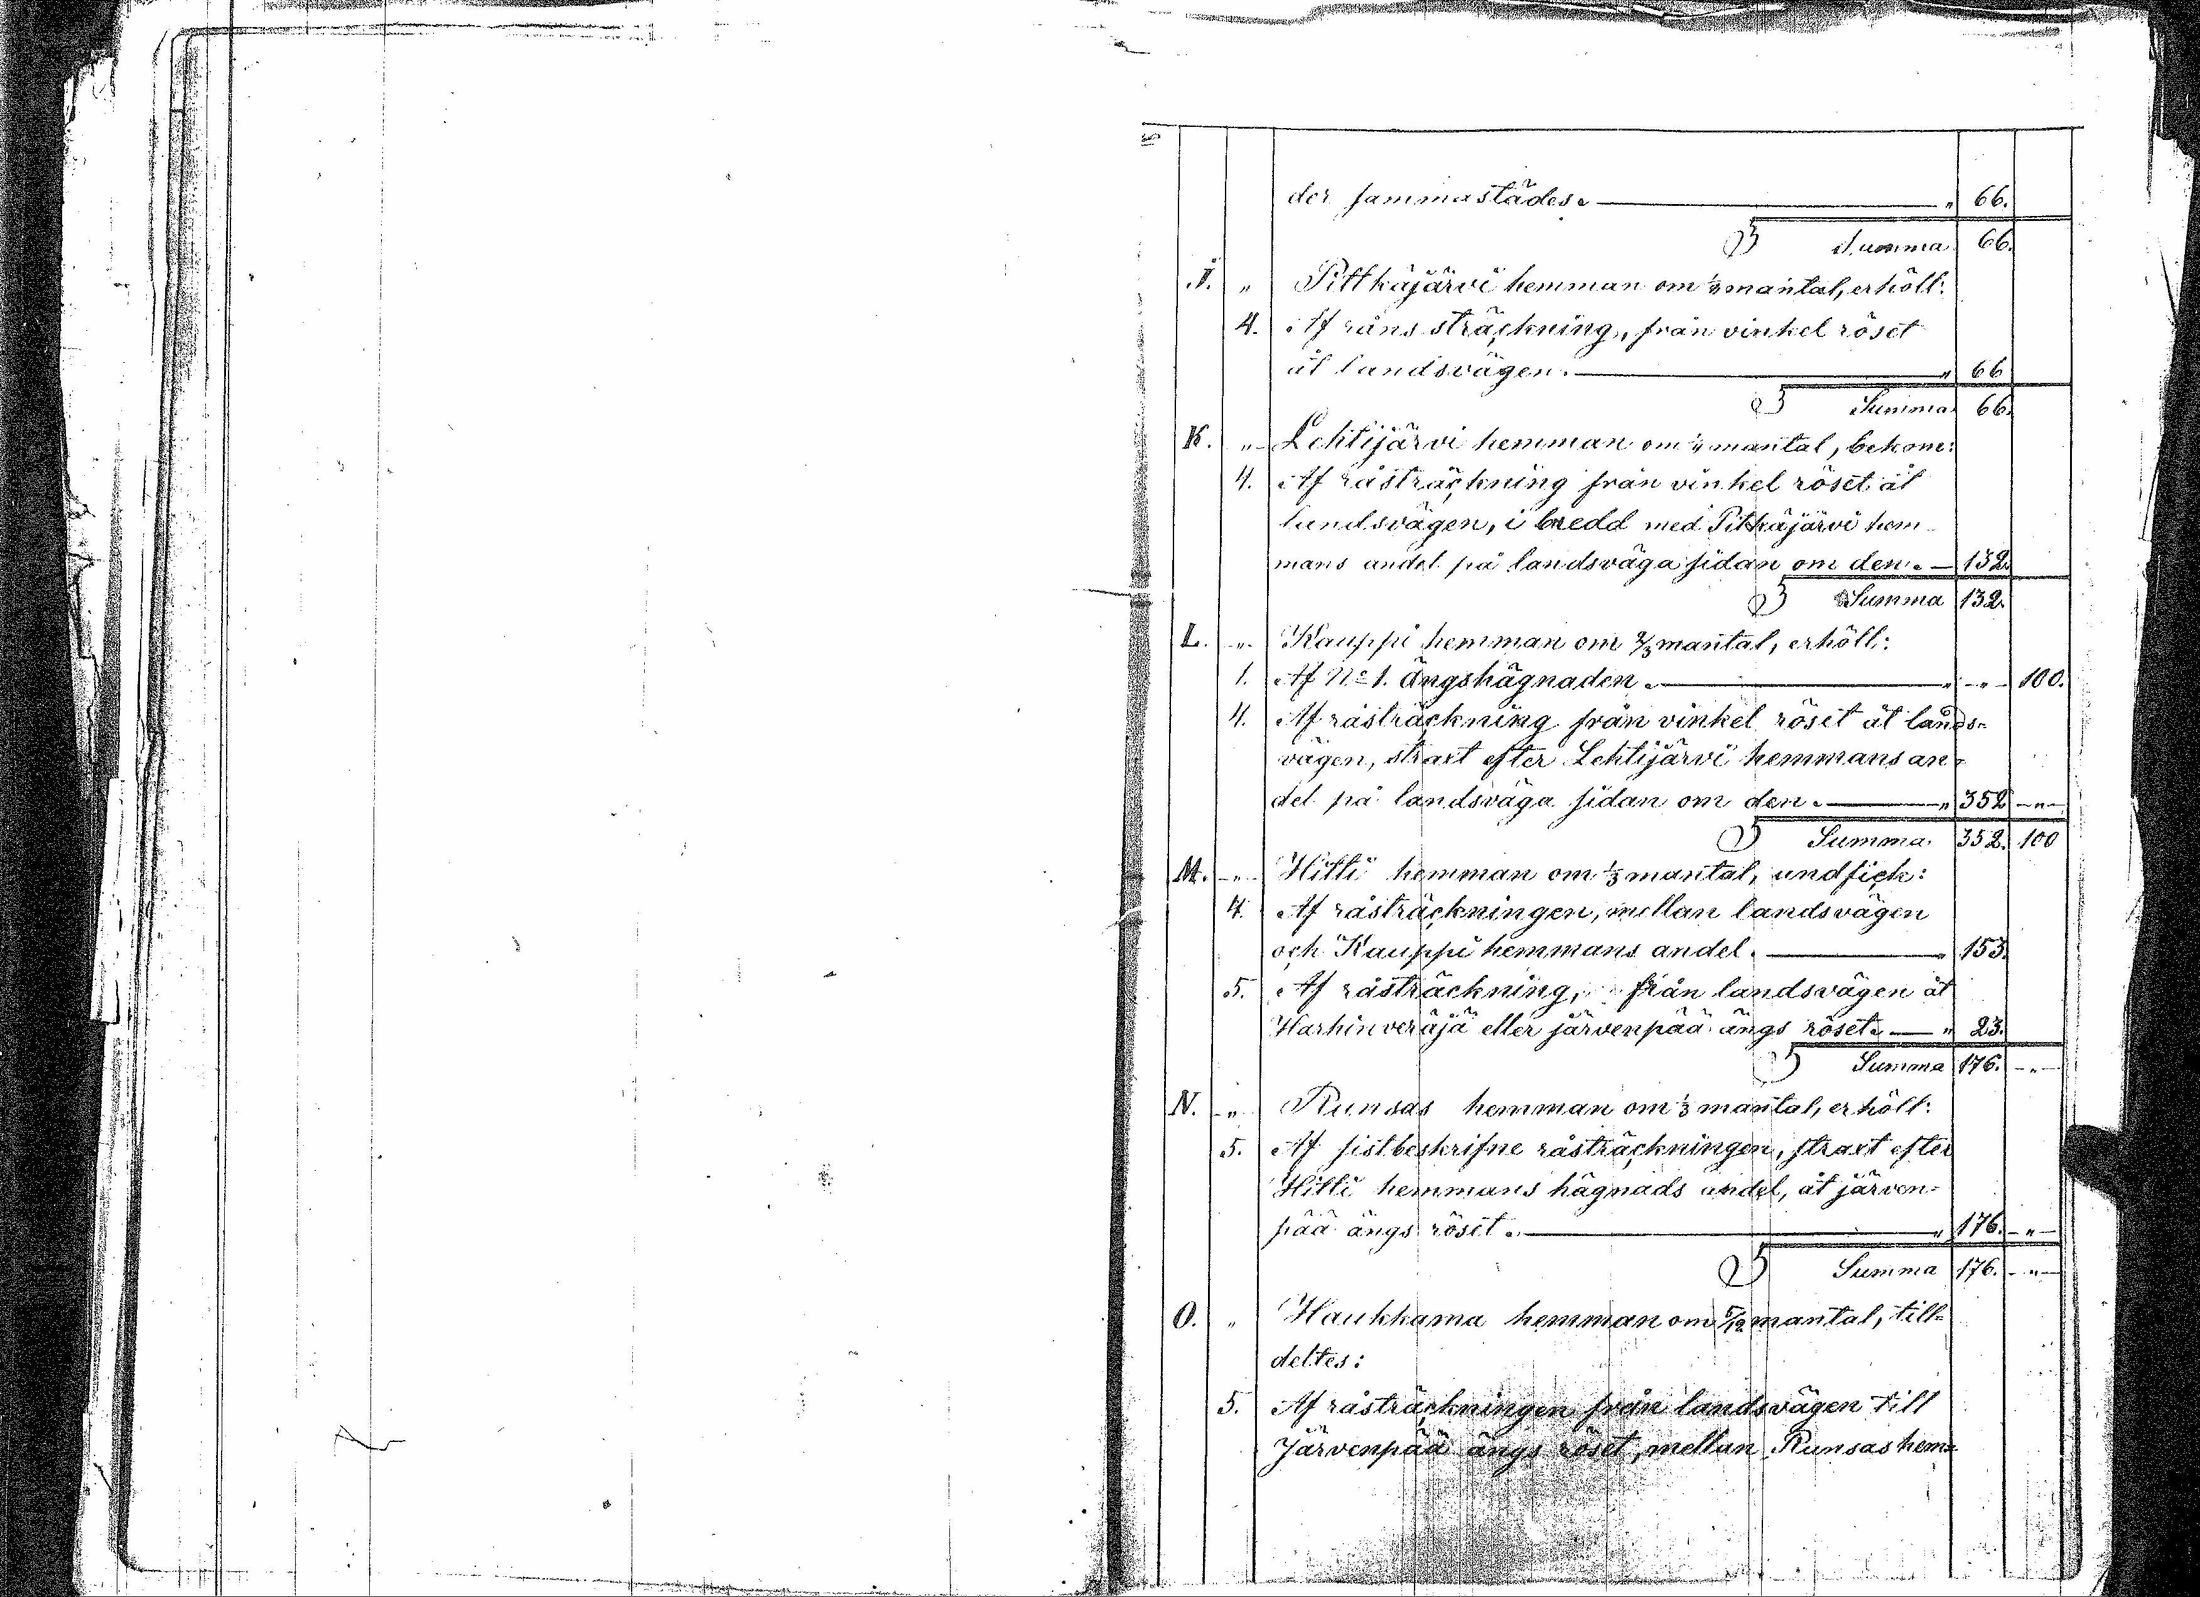 der sammastädes. — " 66.
Summa 66.
I. " Pitkäjärvi hemman om mantal, erhöll:
4. Af råns sträckning, från vinkel röset
åt landsvägen. — " 66
Summa 66.
K. " Lehtijärvi hemman om mantal, bekom:
4. Af råsträckning från vinkel röset åt
landsvägen, i bredd med Pitkäjärvi hem-
mans andel på landsväga sidan om den. — 132.
Summa 132.
L. " Kauppi hemman om 2/3 mantal, erhöll:
1. Af No 1. ängshägnaden. — " — " — 100.
4. Af råsträckning från vinkel röset åt lands-
vägen, straxt efter Lehtijärvi hemmans an-
del på landsväga sidan om den. — " 352 — " —
Summa 352. 100
M. " Hitti hemman om 1/3 mantal, undfick:
4. Af råsträckningen, mellan landsvägen
och Kauppi hemmans andel. — " 153.
5. Af råsträckning, från landsvägen åt
Harhinveräjä eller järvenpää ängs röset. — " 23.
Summa 176. — " —
N. " Runsas hemman om 1/3 mantal, erhöll:
5. Af sistbeskrifne råsträckningen, straxt efter
Hitti hemmans hägnads andel, åt järven-
pää ängs röset. — " 176. — " —
Summa 176. — " —
O. " Haukkama hemman om 5/12 mantal, till-
deltes:
5. Af råsträckningen från landsvägen till
Järvenpää ängs röset, mellan Runsas hem-